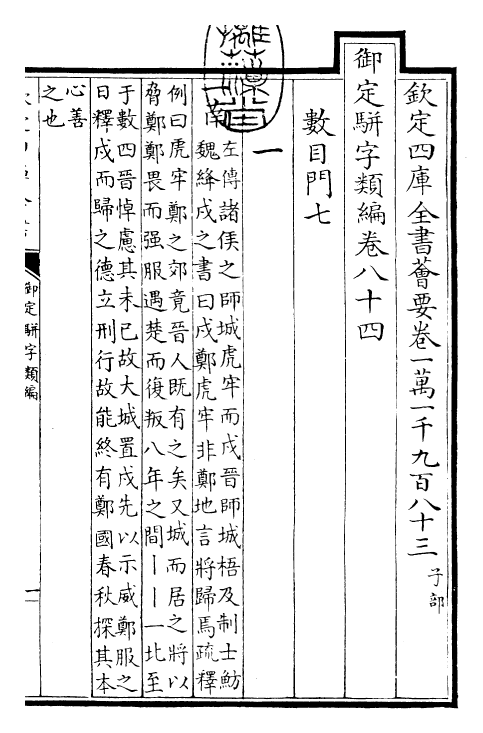 欽定四庫全書薈要卷一萬一千九百八十三 子部
御定駢字類編卷八十四
數目門七
一
一南
左傳諸侯之師城虎牢而戍晉師城梧及制士魴
魏絳戍之書曰戍鄭虎牢非鄭地言將歸焉疏釋
例曰虎牢鄭之郊竟晉人既有之矣又城而居之將以
脅鄭鄭畏而强服遇楚而復叛八年之間丨丨一北至
于數四晉悼慮其未已故大城置戍先以示威鄭服之
日釋戍而歸之德立刑行故能終有鄭國春秋探其本
心善
之也
御定駢字類編
一